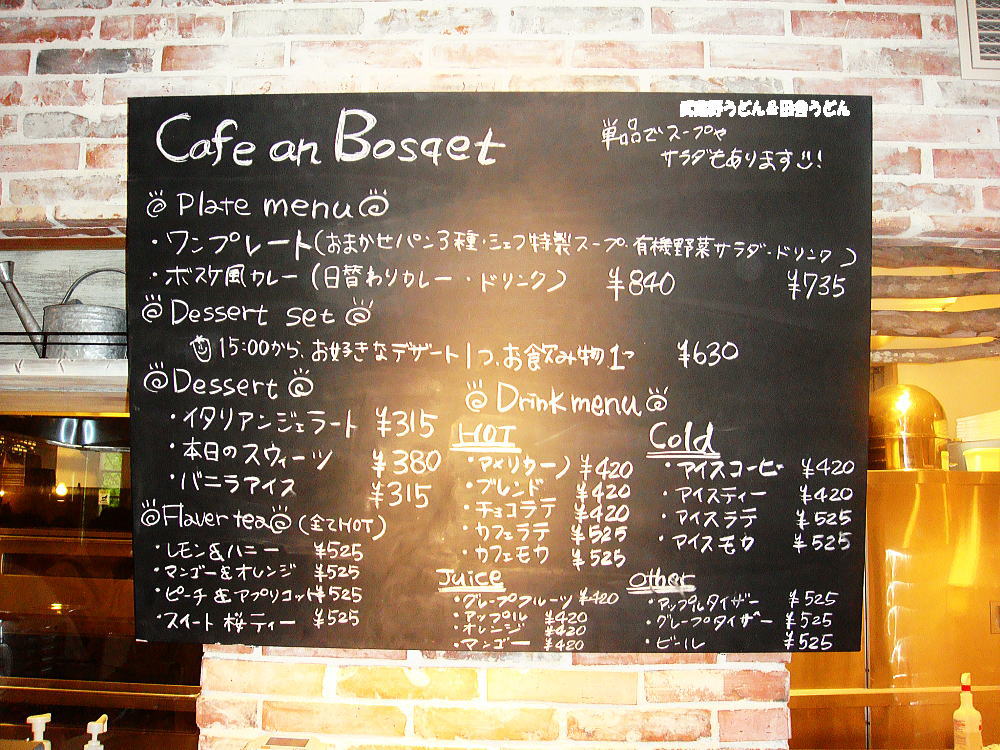 武蔵野うどん&田舎うどん
Cafe an Bosqet
単品でスープや
サラダもあります!
@ Plate menu @
・ワンプレート(おまかせパン3種・シェフ特製スープ・有機野菜サラダ・ドリンク)
・ボスケ風カレー(日替わりカレー・ドリンク) ¥840 ¥735
@ Dessert set @
15:00から、お好きなデザート1つ、お飲み物1つ ¥630
@ Dessert @
・イタリアンジェラート ¥315
・本日のスウィーツ ¥380
・バニラアイス ¥315
@ Flaver tea @ (全てHOT)
・レモン&ハニー ¥525
・マンゴー&オレンジ ¥525
・ピーチ&アプリコット ¥525
・スイート桜ティー ¥525
@ Drink menu @
HOT
・アメリカーノ ¥420
・ブレンド ¥420
・チョコラテ ¥420
・カフェラテ ¥525
・カフェモカ ¥525
Cold
・アイスコーヒー ¥420
・アイスティー ¥420
・アイスラテ ¥525
・アイスモカ ¥525
Juice
・グレープフルーツ ¥420
・アップル ¥420
・オレンジ ¥420
・マンゴー ¥420
other
・アップルタイザー ¥525
・グレープタイザー ¥525
・ビール ¥525